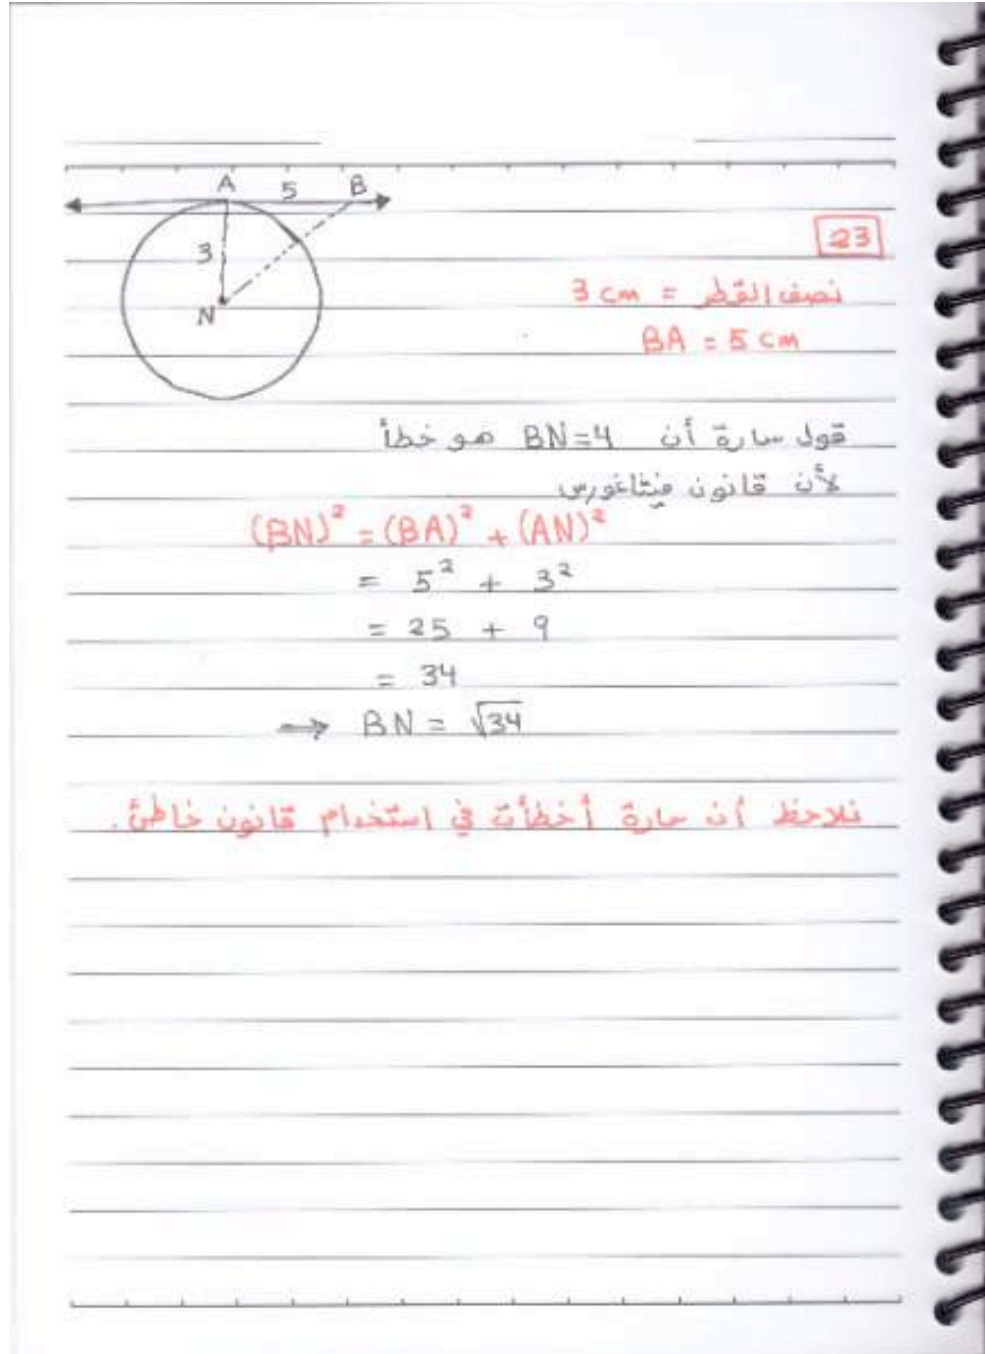 A 5 B
3
N
23
نصف القطر = 3 cm
BA = 5 cm
قول سارة أن BN=4 هو خطأ
لأن قانون فيثاغورس
(BN)² = (BA)² + (AN)²
= 5² + 3²
= 25 + 9
= 34
⟹ BN = √34
نلاحظ أن سارة أخطأت في استخدام قانون خاطئ.